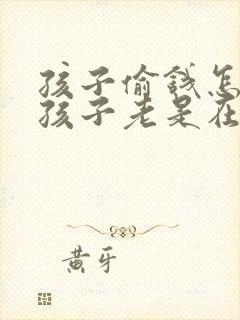 孩子偷钱怎
孩子老是在
黄牙